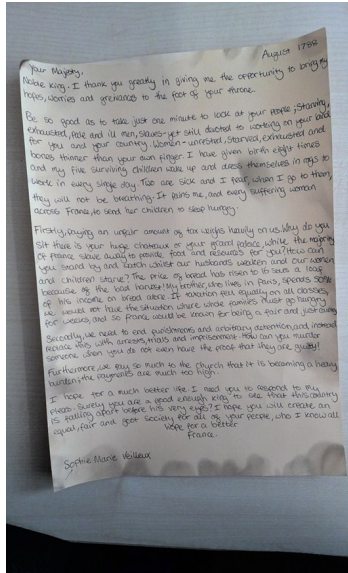 August 1788
Your Majesty,
Noble King. I thank you greatly in giving me the opportunity to bring my
hopes, worries and grievances to the foot of your throne.
Be so good as to take just one minute to look at your people; Starving,
exhausted, pale and ill men, slaves - yet still devoted to working on your
for you and your country. Women - unrested, starved, exhausted and
bones thinner than your own finger. I have given birth eight times
and my five surviving children wake up and dress themselves in rags to
work in every single day. Two are sick and I fear, when I go to them,
they will not be breathing. It pains me, and every suffering woman
across France, to send her children to sleep hungry.
Firstly, paying an unfair amount of tax weighs heavily on us. Why do you
sit there in your huge chateaux or your grand palace, while the majority
of France slave away to provide food and resources for you? How can
you stand by and watch whilst our husbands weaken and our women
and children starve? The price of bread has risen to 16 sous a loaf
because of the bad harvest! My brother, who lives in Paris, spends
of his income on bread alone. If taxation fell equally on all classes,
we would not have the situation where whole families must go hungry
for weeks, and so France would be known for being a fair and just country
Secondly, we need to end punishments and arbitrary detention, and instead
replace this with arrests, trials and imprisonment. How can you murder
someone when you do not even have the proof that they are guilty!
Furthermore, we pay so much to the church that it is becoming a heavy
burden; the payments are much too high.
I hope for a much better life. I need you to respond to my
pleas. Surely you are a good enough king to see that this country
is falling apart before his very eyes? I hope you will create an
equal, fair and just society for all of your people, who I know all
hope for a better
France.
Sophie Marie Veilleux